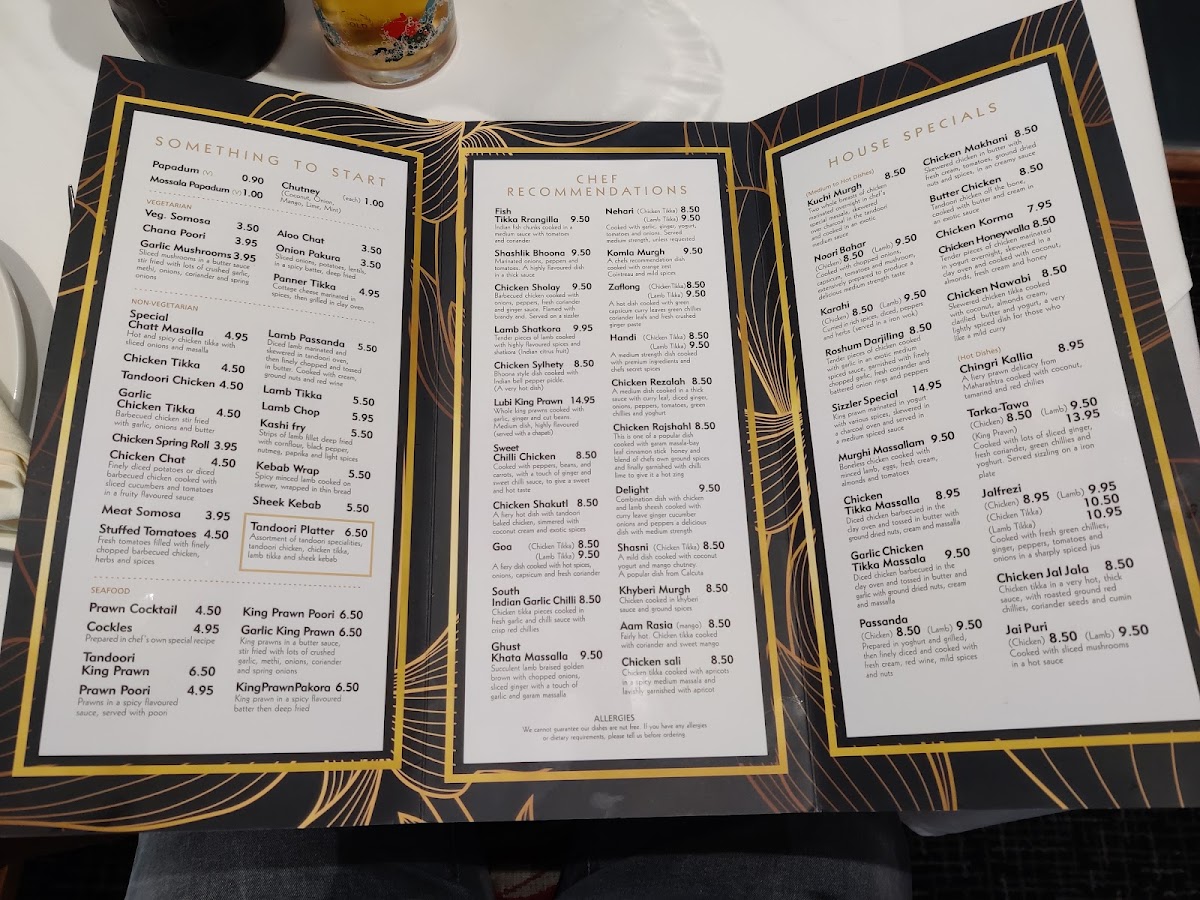 SOMETHING TO START
Papadum (V) 0.90
Mossala Papadum (V) 1.00
Chutney (each) 1.00
(Coconut, Onion,
Mango, Lime, Mint)
VEGETARIAN
Veg. Somosa 3.50
Chana Poori 3.95
Garlic Mushrooms 3.95
Sliced mushrooms in a butter sauce
stir fried with lots of crushed garlic,
methi, onions, coriander and spring
Aloo Chat 3.50
Onion Pakura 3.50
Sliced onions, potatoes, lentils,
in a spicy batter, deep fried
Panner Tikka 4.95
Cottage cheese marinated in
spices, then grilled in clay oven
NON-VEGETARIAN
Special
Chatt Masalla 4.95
Hot and spicy chicken tikka with
sliced onions and masalla
Chicken Tikka 4.50
Tandoori Chicken 4.50
Garlic
Chicken Tikka 4.50
Barbecued chicken stir fried
with garlic, onions and butter
Chicken Spring Roll 3.95
Chicken Chat 4.50
Finely diced potatoes or diced
barbecued chicken cooked with
sliced cucumbers and tomatoes
in a fruity flavoured sauce
Meat Somosa 3.95
Stuffed Tomatoes 4.50
Fresh tomatoes filled with finely
chopped barbecued chicken,
herbs and spices
Lamb Passanda 5.50
Diced lamb marinated and
skewered in tandoori oven,
then finely chopped and tossed
in butter. Cooked with cream,
ground nuts and red wine
Lamb Tikka 5.50
Lamb Chop 5.95
Kashi fry 5.50
Strips of lamb fillet deep fried
with cornflour, black pepper,
nutmeg, paprika and light spices
Kebab Wrap 5.50
Spicy minced lamb cooked on
skewer, wrapped in thin bread
Sheek Kebab 5.50
Tandoori Platter 6.50
Assortment of tandoori specialities,
tandoori chicken, chicken tikka,
lamb tikka and sheek kebab
SEAFOOD
Prawn Cocktail 4.50
Cockles 4.95
Prepared in chef's own special recipe
Tandoori
King Prawn 6.50
Prawn Poori 4.95
Prawns in a spicy flavoured
sauce, served with poori
King Prawn Poori 6.50
Garlic King Prawn 6.50
King prawns in a butter sauce,
stir fried with lots of crushed
garlic, methi, onions, coriander
and spring onions
KingPrawnPakora 6.50
King prawn in a spicy flavoured
batter then deep fried
CHEF
RECOMMENDATIONS
Fish
Tikka Rrangilla 9.50
Indian fish chunks cooked in a
medium sauce with tomatoes
and coriander
Shashlik Bhoona 9.50
Marinated onions, peppers and
tomatoes. A highly flavoured dish
in a thick sauce
Chicken Sholay 9.50
Barbecued chicken cooked with
onions, peppers, fresh coriander
and ginger sauce. Flamed with
brandy and. Served on a sizzler
Lamb Shatkora 9.95
Tender pieces of lamb cooked
with highly flavoured spices and
shatkora (Indian citrus fruit)
Chicken Sylhety 8.50
Bhoona style dish cooked with
Indian bell pepper pickle.
(A very hot dish)
Lubi King Prawn 14.95
Whole king prawns cooked with
garlic, ginger and cut beans.
Medium dish, highly flavoured
(served with a chapati)
Sweet
Chilli Chicken 8.50
Cooked with peppers, beans, and
carrots, with a touch of ginger and
sweet chilli sauce, to give a sweet
and hot taste
Chicken Shakutl 8.50
A fiery hot dish with tandoori
baked chicken, simmered with
coconut cream and exotic spices
Goa (Chicken Tikka) 8.50
(Lamb Tikka) 9.50
A fiery dish cooked with hot spices,
onions, capsicum and fresh coriander
South
Indian Garlic Chilli 8.50
Chicken tikka pieces cooked in
fresh garlic and chilli sauce with
crisp red chillies
Ghust
Khata Massalla 9.50
Succulent lamb braised golden
brown with chopped onions,
sliced ginger with a touch of
garlic and garam masalla
Nehari (Chicken Tikka) 8.50
(Lamb Tikka) 9.50
Cooked with garlic, ginger, yogurt,
tomatoes and onions. Served
medium strength, unless requested
Komla Murgh 9.50
A chefs recommendation dish
cooked with orange zest
Cointreau and mild spices
Zaflong (Chicken Tikka) 8.50
(Lamb Tikka) 9.50
A hot dish cooked with green
capsicum curry leaves green chillies
coriander leafs and fresh crushed
ginger paste
Handi (Chicken Tikka) 8.50
(Lamb Tikka) 9.50
A medium strength dish cooked
with premium ingredients and
chefs secret spices
Chicken Rezalah 8.50
A medium dish cooked in a thick
sauce with curry leaf, diced ginger,
onions, peppers, tomatoes, green
chillies and yoghurt
Chicken Rajshahl 8.50
This is one of a popular dish
cooked with garam masala-bay
leaf cinnamon stick honey and
blend of chefs own ground spices
and finally garnished with chilli
lime to give it a hot zing
Delight 9.50
Combination dish with chicken
and lamb sheesh cooked with
curry leave ginger cucumber
onions and peppers a delicious
dish with medium strength
Shasni (Chicken Tikka) 8.50
A mild dish cooked with coconut
yogurt and mango chutney.
A popular dish from Calcuta
Khyberi Murgh 8.50
Chicken cooked in khyberi
sauce and ground spices
Aam Rasia (mango) 8.50
Fairly hot. Chicken tikka cooked
with coriander and sweet mango
Chicken sali 8.50
Chicken tikka cooked with apricots
in a spicy medium massala and
lavishly garnished with apricot
ALLERGIES
We cannot guarantee our dishes are nut free. If you have any allergies
or dietary requirements, please tell us before ordering
HOUSE SPECIALS
(Medium to Hot Dishes)
Kuchi Murgh 8.50
Two whole breasts of chicken
marinated overnight in chef's
special masala, skewered
over charcoal in the tandoori
and cooked in an exotic
medium sauce
Noori Bahar
(Chicken) 8.50 (Lamb) 9.50
Cooked with chopped onions,
capsicum, tomatoes and mushroom,
extensively prepared to produce a
delicious medium strength taste
Karahi
(Chicken) 8.50 (Lamb) 9.50
Curried in rich spices, diced, peppers
and herbs (served in a iron wok)
Roshum Darjiling 8.50
Tender pieces of chicken cooked
with garlic in an exotic medium
spiced sauce, garnished with finely
chopped garlic, fresh coriander and
battered onion rings and peppers
Sizzler Special 14.95
King prawn marinated in yogurt
with various spices, skewered in
a charcoal oven and served with
a medium spiced sauce
Murghi Massallam 9.50
Boneless chicken cooked with
minced lamb, eggs, fresh cream,
almonds and tomatoes
Chicken
Tikka Massalla 8.95
Diced chicken barbecued in the
clay oven and tossed in butter with
ground dried nuts, cream and massalla
Garlic Chicken
Tikka Massala 9.50
Diced chicken barbecued in the
clay oven and tossed in butter and
garlic with ground dried nuts, cream
and massalla
Passanda
(Chicken) 8.50 (Lamb) 9.50
Prepared in yoghurt and grilled,
then finely diced and cooked with
fresh cream, red wine, mild spices
and nuts
Chicken Makhani 8.50
Skewered chicken in butter with
fresh cream, tomatoes, ground dried
nuts and spices, in an creamy sauce
Butter Chicken 8.50
Tandoori chicken off the bone,
cooked with butter cream in
an exotic sauce
Chicken Korma 7.95
Chicken Honeywalla 8.50
Tender pieces of chicken marinated
in yogurt overnight, skewered in a
clay oven and cooked with coconut,
almonds, fresh cream and honey
Chicken Nawabi 8.50
Skewered chicken tikka cooked
with coconut, almonds cream,
clarified, butter and yogurt, a very
lightly spiced dish for those who
like a mild curry
(Hot Dishes)
Chingri Kallia 8.95
A fiery prawn delicacy from
Maharastra cooked with coconut,
tamarind and red chillies
Tarka-Tawa
(Chicken) 8.50 (Lamb) 9.50
(King Prawn) 13.95
Cooked with lots of sliced ginger,
fresh coriander, green chillies and
yoghurt. Served sizzling on a iron
plate
Jalfrezi
(Chicken) 8.95 (Lamb) 9.95
(Chicken Tikka) 10.50
(Lamb Tikka) 10.95
Cooked with fresh green chillies,
ginger, peppers, tomatoes and
onions in a sharply spiced jus
Chicken Jal Jala 8.50
Chicken tikka in a very hot, thick
sauce, with roasted ground red
chillies, coriander seeds and cumin
Jai Puri
(Chicken) 8.50 (Lamb) 9.50
Cooked with sliced mushrooms
in a hot sauce